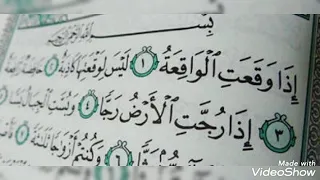 بِسْمِ ٱللَّهِ ٱلرَّحْمَٰنِ ٱلرَّحِيمِ
إِذَا وَقَعَتِ ٱلْوَاقِعَةُ ١ لَيْسَ لِوَقْعَتِهَا كَاذِبَةٌ ٢ خَافِضَةٌ
٣ إِذَا رُجَّتِ ٱلْأَرْضُ رَجًّا ٤ وَبُسَّتِ ٱلْجِبَالُ
٦ وَكُنتُمْ أَزْوَٰجًا ثَلَٰثَةً
Made with
VideoShow